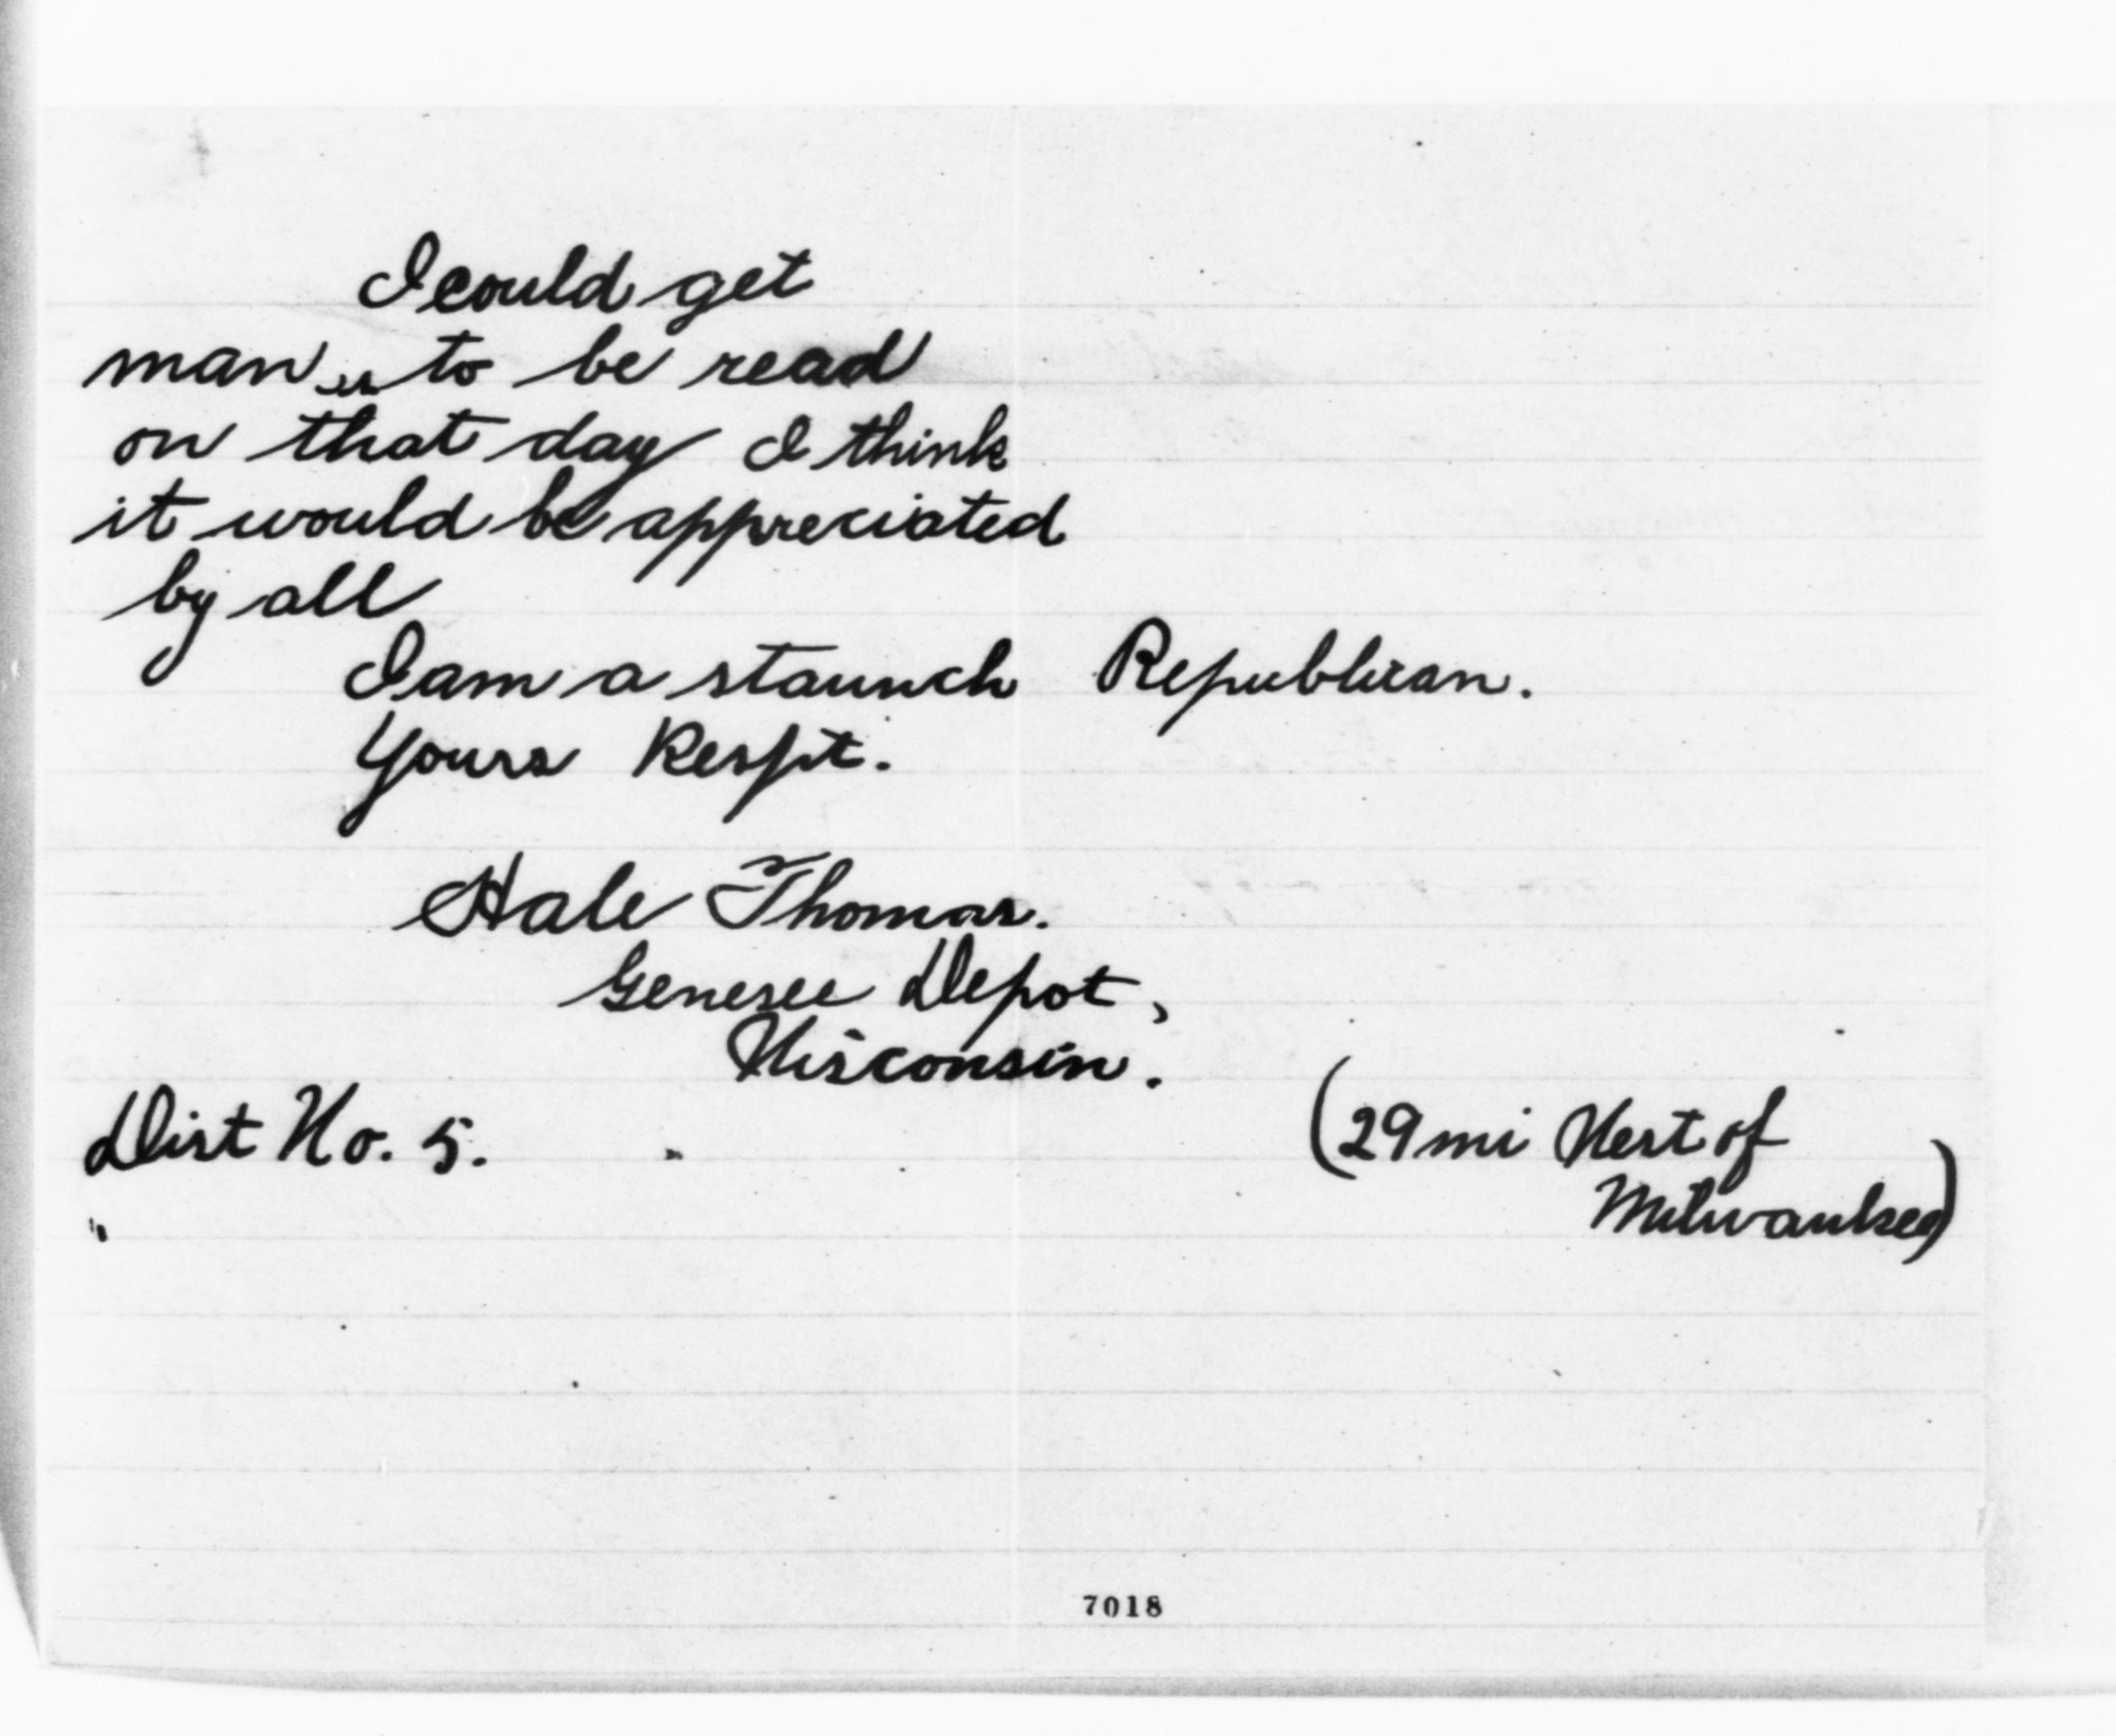 I could get
man us to be read
on that day I think
it would be appreciated
by all
I am a staunch Republican.
Yours Respt.
Hale Thomas.
Genesee Depot,
Wisconsin.
Dist No. 5.
(29 mi West of
Milwaukee)
7018